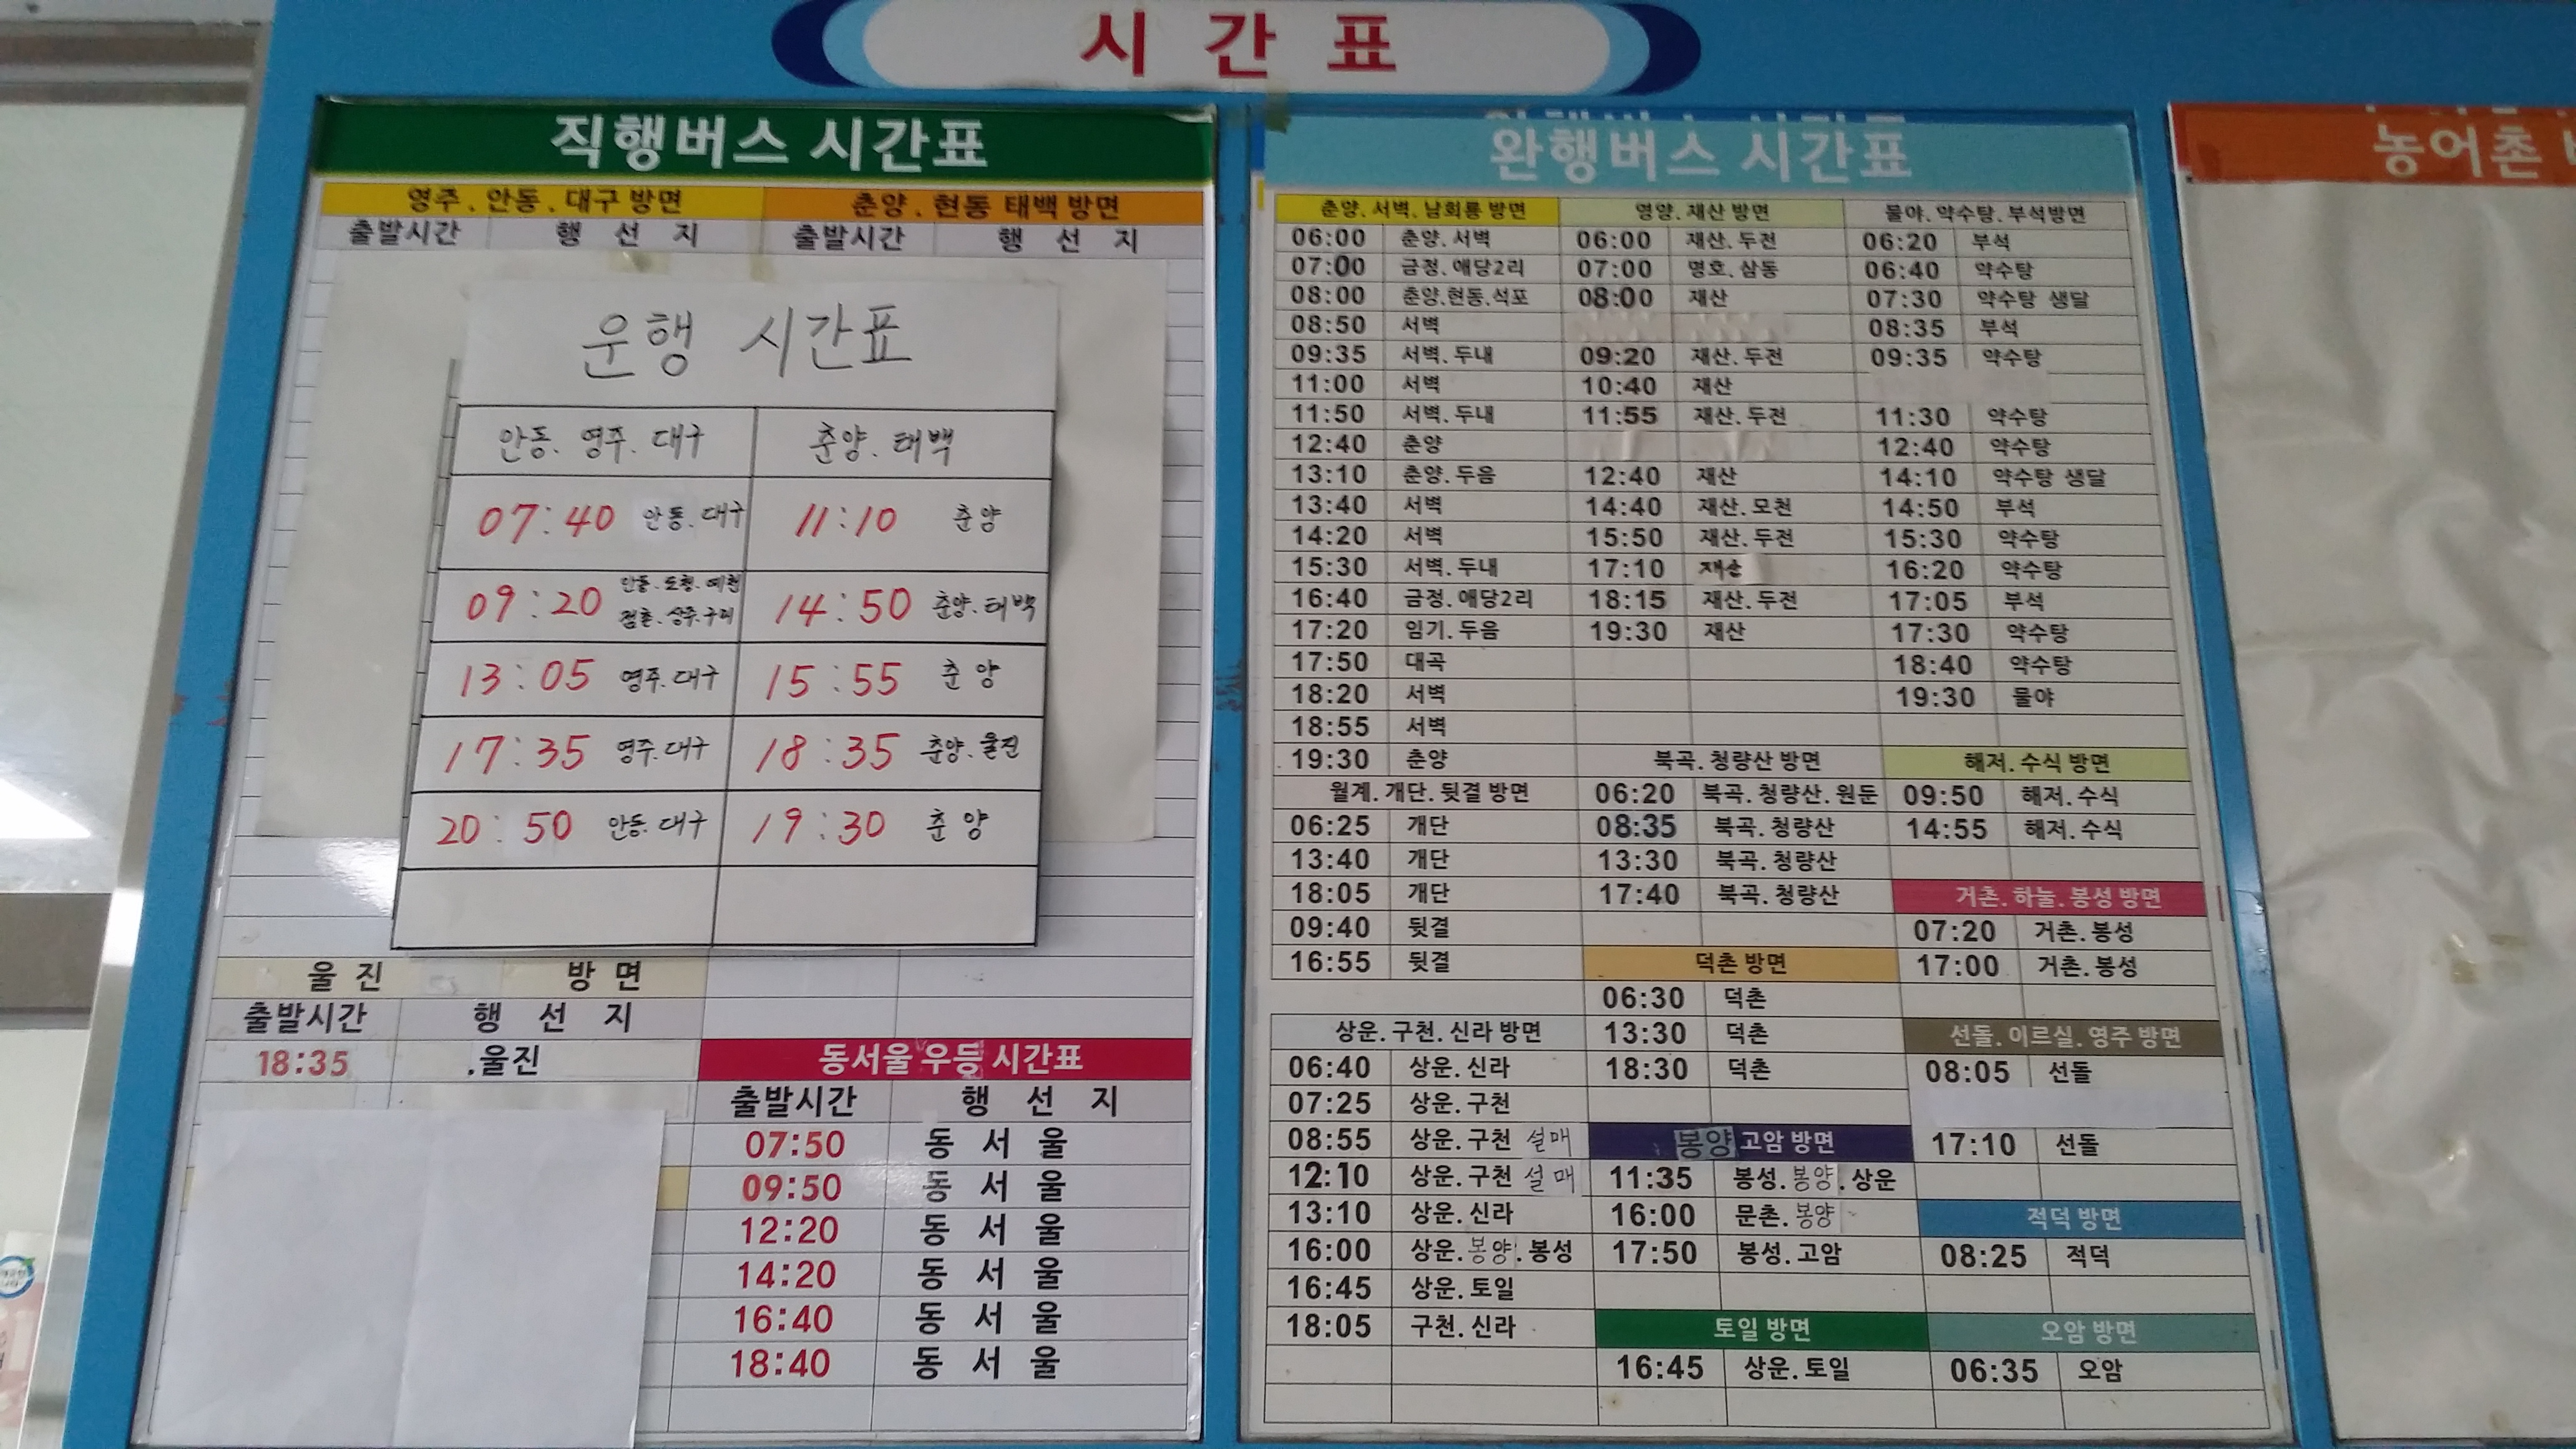 시 간 표
직행버스 시간표
영주 . 안동 . 대구 방면 춘양 . 현동 태백 방면
출발시간 행 선 지 출발시간 행 선 지
운행 시간표
안동. 영주. 대구 춘양. 태백
07:40 안동. 대구 11:10 춘양
09:20 안동. 도청. 예천 점촌. 상주. 구미 14:50 춘양. 태백
13:05 영주. 대구 15:55 춘양
17:35 영주. 대구 18:35 춘양. 울진
20:50 안동. 대구 19:30 춘양
울 진 방 면
출발시간 행 선 지
18:35 .울진
동서울 우등 시간표
출발시간 행 선 지
07:50 동 서 울
09:50 동 서 울
12:20 동 서 울
14:20 동 서 울
16:40 동 서 울
18:40 동 서 울
완행버스 시간표
춘양. 서벽. 남회룡 방면
06:00 춘양. 서벽
07:00 금정. 애당2리
08:00 춘양.현동.석포
08:50 서벽
09:35 서벽. 두내
11:00 서벽
11:50 서벽. 두내
12:40 춘양
13:10 춘양. 두음
13:40 서벽
14:20 서벽
15:30 서벽. 두내
16:40 금정. 애당2리
17:20 임기. 두음
17:50 대곡
18:20 서벽
18:55 서벽
19:30 춘양
월계. 개단. 뒷결 방면
06:25 개단
13:40 개단
18:05 개단
09:40 뒷결
16:55 뒷결
상운. 구천. 신라 방면
06:40 상운. 신라
07:25 상운. 구천
08:55 상운. 구천 설매
12:10 상운. 구천 설매
13:10 상운. 신라
16:00 상운. 봉양. 봉성
16:45 상운. 토일
18:05 구천. 신라
영양. 재산 방면
06:00 재산. 두전
07:00 명호. 삼동
08:00 재산
09:20 재산. 두전
10:40 재산
11:55 재산. 두전
12:40 재산
14:40 재산. 모천
15:50 재산. 두전
17:10 재산
18:15 재산. 두전
19:30 재산
북곡. 청량산 방면
06:20 북곡. 청량산. 원둔
08:35 북곡. 청량산
13:30 북곡. 청량산
17:40 북곡. 청량산
덕촌 방면
06:30 덕촌
13:30 덕촌
18:30 덕촌
봉양 고암 방면
11:35 봉성. 봉양. 상운
16:00 문촌. 봉양
17:50 봉성. 고암
토일 방면
16:45 상운. 토일
물야. 약수탕. 부석방면
06:20 부석
06:40 약수탕
07:30 약수탕 생달
08:35 부석
09:35 약수탕
11:30 약수탕
12:40 약수탕
14:10 약수탕 생달
14:50 부석
15:30 약수탕
16:20 약수탕
17:05 부석
17:30 약수탕
18:40 약수탕
19:30 물야
해저. 수식 방면
09:50 해저. 수식
14:55 해저. 수식
거촌. 하눌. 봉성 방면
07:20 거촌. 봉성
17:00 거촌. 봉성
선돌. 이르실. 영주 방면
08:05 선돌
17:10 선돌
적덕 방면
08:25 적덕
오암 방면
06:35 오암
농어촌